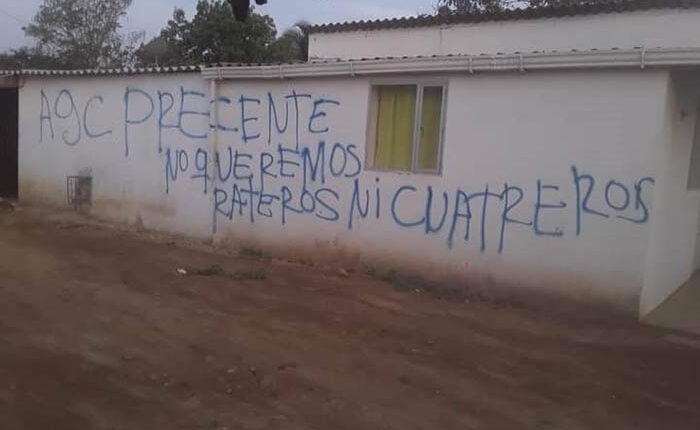 AgC PRECENTE
NO QUEREMOS
RATEROS Ni CUATREROS